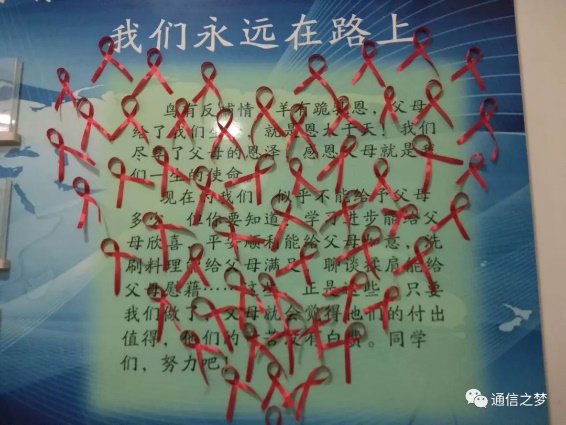 我们永远在路上
乌有反哺情，羊有跪乳恩，父母
给了我们生 就是恩大于天！我们
尽享了父母的恩泽，感恩父母就是我
们一生的使命
现在的我们，似乎不能给予父母
多少，但你要知道，学习进步能给父
母欣喜，平安顺 能给父母 意，洗
刷料理能给父母满足，聊谈揉肩能给
父母慰藉…… 正是这些，只要
我们做了，父母就会觉得他们的付出
值得，他们的 苦没有白费。同学
们，努力吧！
通信之梦